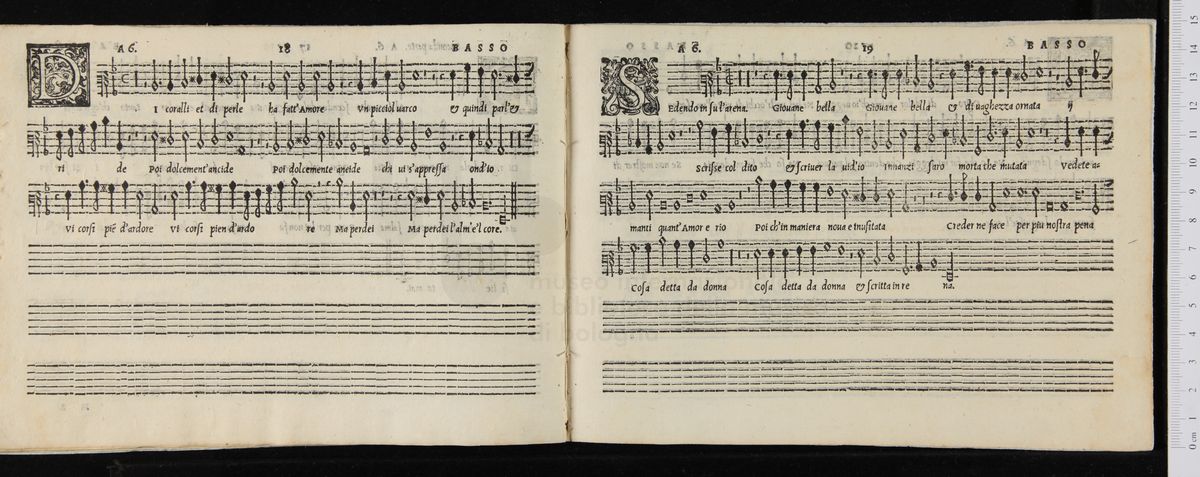 A 6. 18 BASSO
DI coralli et di perle ha fatt'Amore Un picciol uarco & quindi parl'&
ri de Poi dolcement'ancide Poi dolcemente ancide chi ui s'appressa ond'io
Vi corsi piē d'ardore Vi corsi pien d'ardo re Ma perdei Ma perdei l'alm'e'l core.
A 6. 19 BASSO
SEdendo in su l'arena. Giouane bella Giouane bella & di uaghezza ornata ij
Scrisse col dito & scriuer la uid'io innanzi saro morta che mutata Vedete a-
manti quant'Amor e rio Poi ch'in maniera noua e inusitata Creder ne face per piu nostra pena
Cosa detta da donna Cosa detta da donna & scritta in re na.
museo
bibli
di bologna
0 cm 1 2 3 4 5 6 7 8 9 10 11 12 13 14 15